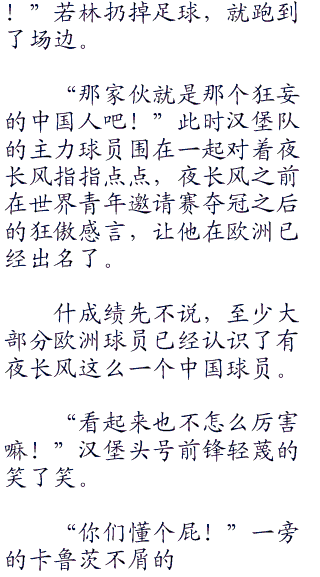 ！”若林扔掉足球，就跑到
了场边。
“那家伙就是那个狂妄
的中国人吧！”此时汉堡队
的主力球员围在一起对着夜
长风指指点点，夜长风之前
在世界青年邀请赛夺冠之后
的狂傲感言，让他在欧洲已
经出名了。
什成绩先不说，至少大
部分欧洲球员已经认识了有
夜长风这么一个中国球员。
“看起来也不怎么厉害
嘛！”汉堡头号前锋轻蔑的
笑了笑。
“你们懂个屁！”一旁
的卡鲁茨不屑的